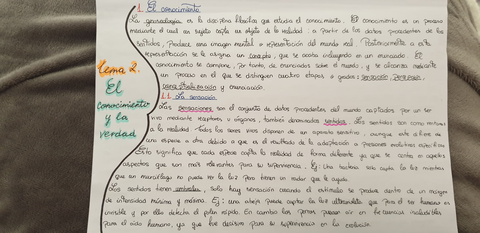 Tema 2.
El
conocimiento
y la
verdad
1. El conocimiento
La gnoseología es la disciplina filosófica que estudia el conocimiento. El conocimiento es un proceso
mediante el cual un sujeto capta un objeto de la realidad a partir de los datos procedentes de los
sentidos, produce una imagen mental o representación del mundo real. Posteriormente a esta
representación se le asigna un concepto, que se acaba incluyendo en un enunciado. El
conocimiento se compone, por tanto, de enunciados sobre el mundo, y se alcanza mediante
un proceso en el que se distinguen cuatro etapas o grados: sensación, percepción,
y enunciación
1.1. La sensación
Las sensaciones son el conjunto de datos procedentes del mundo captados por un ser
vivo mediante receptores u órganos, también denominados sentidos. Los sentidos son como
a la realidad. Todos los seres vivos disponen de un aparato sensitivo, aunque este difiere de
una especie a otra debido a que es el resultado de la adaptación a presiones evolutivas
Esto significa que cada especie capta la realidad de forma diferente ya que se centra en aquellos
aspectos que son más relevantes para su supervivencia. Ej: Una bacteria solo capta la luz mientras
que un murciélago no puede ver la luz pero tienen un radar que le ayuda
Los sentidos tienen umbrales, solo hay sensación cuando el estímulo se produce dentro de un margen
de intensidad mínima y máxima. Ej: una abeja puede captar la luz ultravioleta que para el ser humano es
invisible y por ello detecta el polen rápido. En cambio los perros pueden oír en frecuencias inaudibles
para el oído humano, ya que fue decisivo para su supervivencia en la evolución